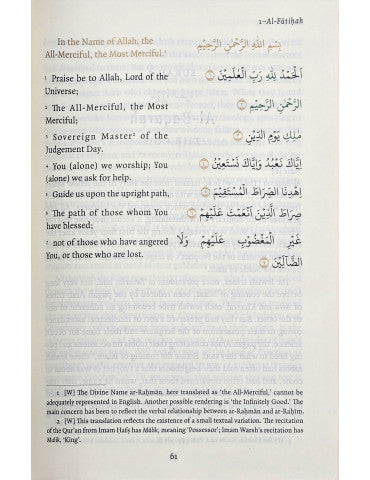 1–Al-Fātiḥah
In the Name of Allah, the
All-Merciful, the Most Merciful.¹
1 Praise be to Allah, Lord of the
Universe;
2 The All-Merciful, the Most
Merciful;
3 Sovereign Master² of the
Judgement Day.
4 You (alone) we worship; You
(alone) we ask for help.
5 Guide us upon the upright path,
6 The path of those whom You
have blessed;
7 not of those who have angered
You, or those who are lost.
بِسْمِ اللَّهِ الرَّحْمَٰنِ الرَّحِيمِ
الْحَمْدُ لِلَّهِ رَبِّ الْعَٰلَمِينَ
الرَّحْمَٰنِ الرَّحِيمِ
مَٰلِكِ يَوْمِ الدِّينِ
إِيَّاكَ نَعْبُدُ وَإِيَّاكَ نَسْتَعِينُ
اهْدِنَا الصِّرَاطَ الْمُسْتَقِيمَ
صِرَاطَ الَّذِينَ أَنْعَمْتَ عَلَيْهِمْ
غَيْرِ الْمَغْضُوبِ عَلَيْهِمْ وَلَا
الضَّآلِّينَ
1 [W] The Divine Name ar-Raḥmān, here translated as ‘the All-Merciful,’ cannot be
adequately represented in English. Another possible rendering is ‘the Infinitely Good.’ The
main concern has been to reflect the verbal relationship between ar-Raḥmān and ar-Raḥīm.
2 [W] This translation reflects the existence of a small textual variation. The recitation
of the Qur’an from Imam Ḥafṣ has Mālik, meaning ‘Possessor’; Imam Warsh’s recitation has
Malik, ‘King’.
61